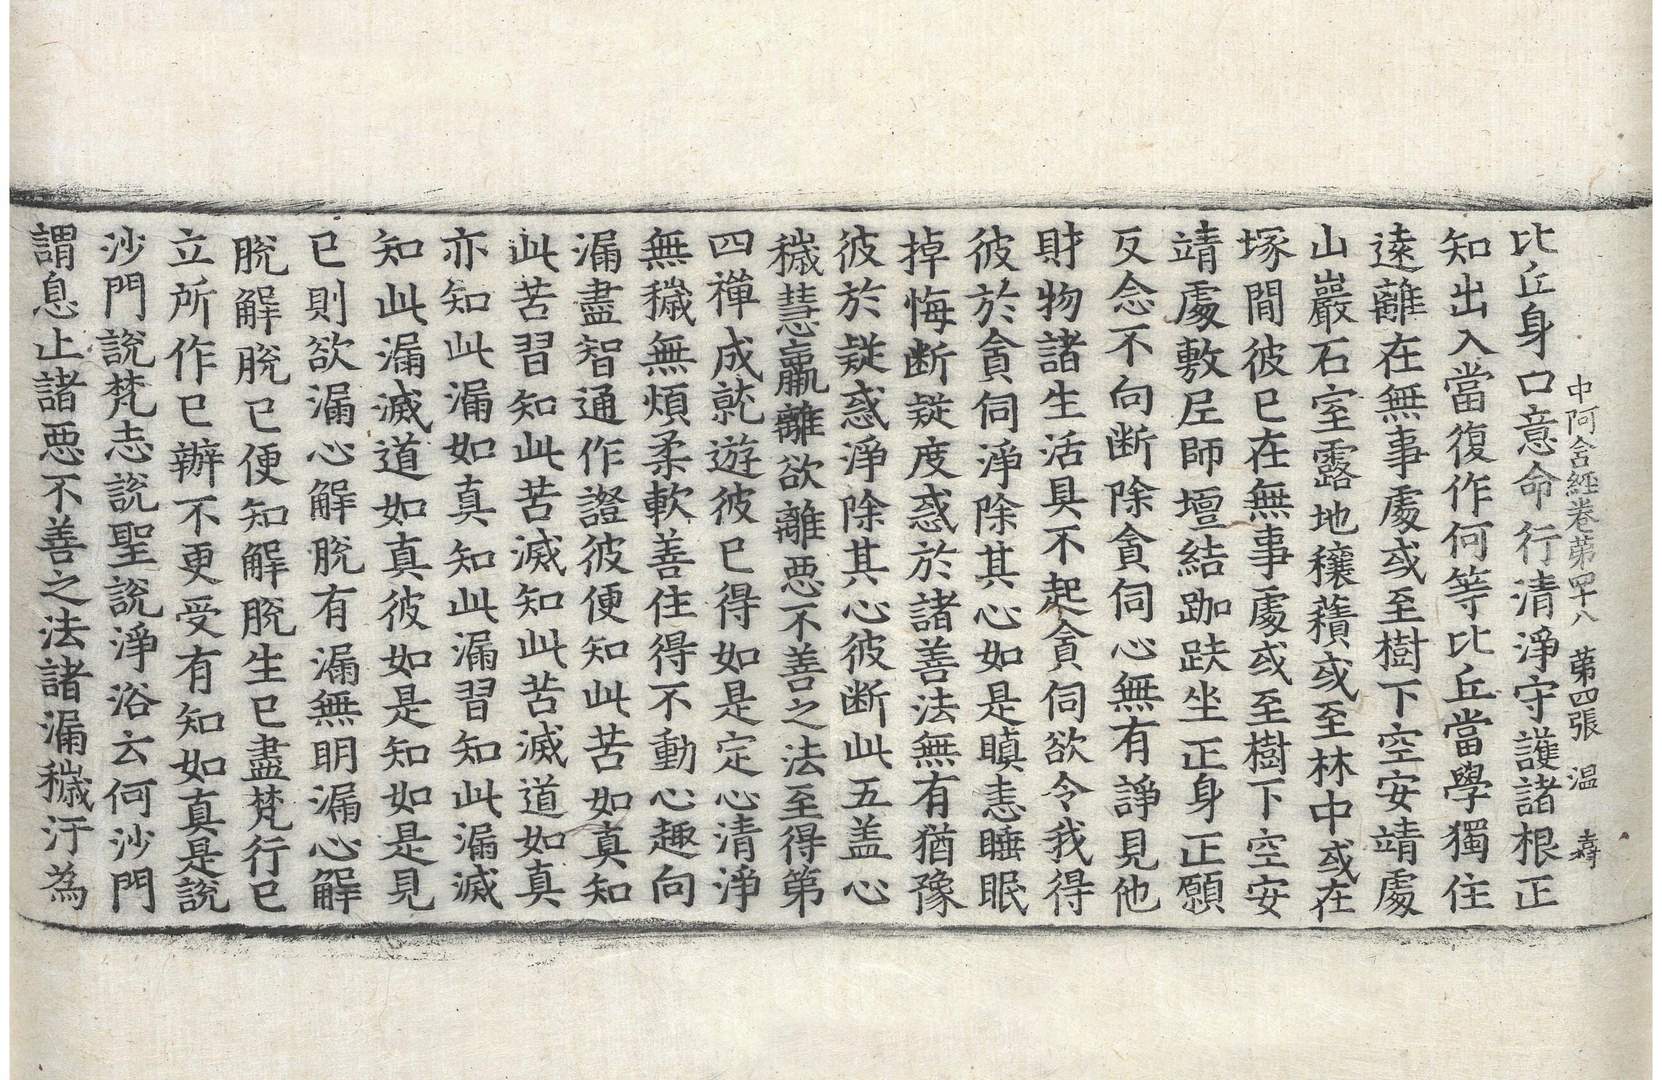 中阿含經卷第四十八 第四張 温
比丘身口意命行清淨守護諸根正
知出入當復作何等比丘當學獨住
遠離在無事處或至樹下空安靖處
山巖石室露地穰積或至林中或在
塚間彼已在無事處或至樹下空安
靖處敷尼師壇結跏趺坐正身正願
反念不向断除貪伺心無有諍見他
財物諸生活具不起貪伺欲令我得
彼於貪伺淨除其心如是瞋恚睡眠
掉悔断疑度惑於諸善法無有猶豫
彼於疑惑淨除其心彼断此五盖心
穢慧羸離欲離惡不善之法至得第
四禪成就遊彼已得如是定心清淨
無穢無煩柔軟善住得不動心趣向
漏盡智通作證彼便知此苦如真知
此苦習知此苦滅知此苦滅道如真
亦知此漏如真知此漏習知此漏滅
知此漏滅道如真彼如是知如是見
已則欲漏心解脫有漏無明漏心解
脫解脫已便知解脫生已盡梵行已
立所作已辦不更受有知如真是説
沙門説梵志説聖説淨浴云何沙門
謂息止諸惡不善之法諸漏穢汙為